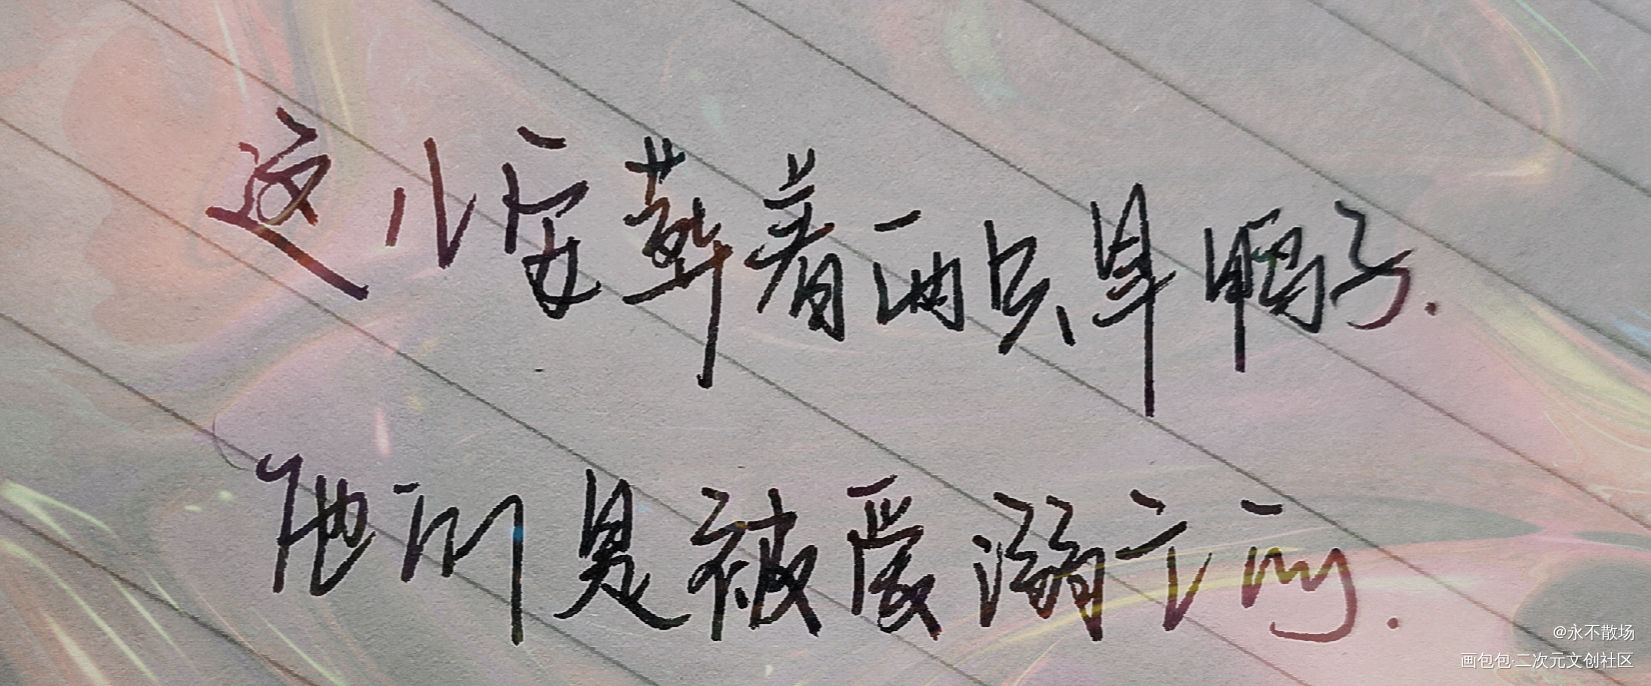 这儿安葬着两只旱鸭子.
他们是被爱溺亡的.
@永不散场
画包包·二次元文创社区